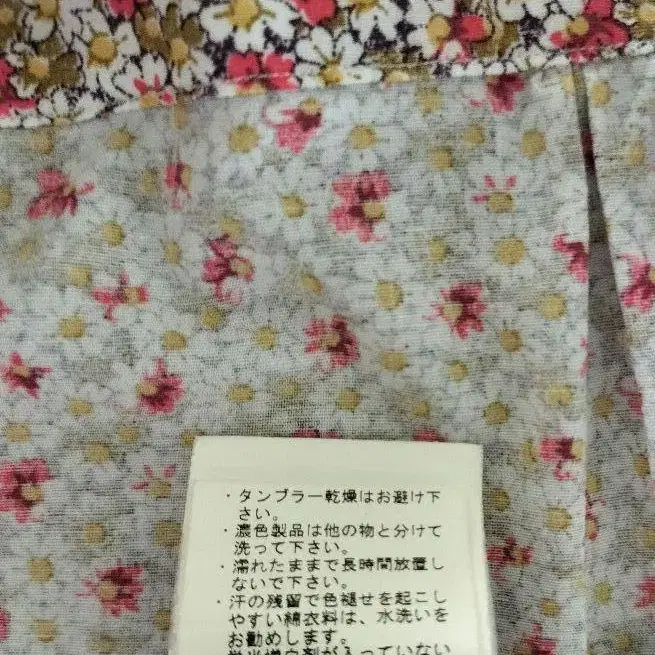 ・タンブラー乾燥はお避け下
さい。
・濃色製品は他の物と分けて
洗って下さい。
・濡れたままで長時間放置し
ないで下さい。
・汗の残留で色褪せを起こし
やすい綿衣料は、水洗いを
お勧めします。
蛍光増白剤が入っていない